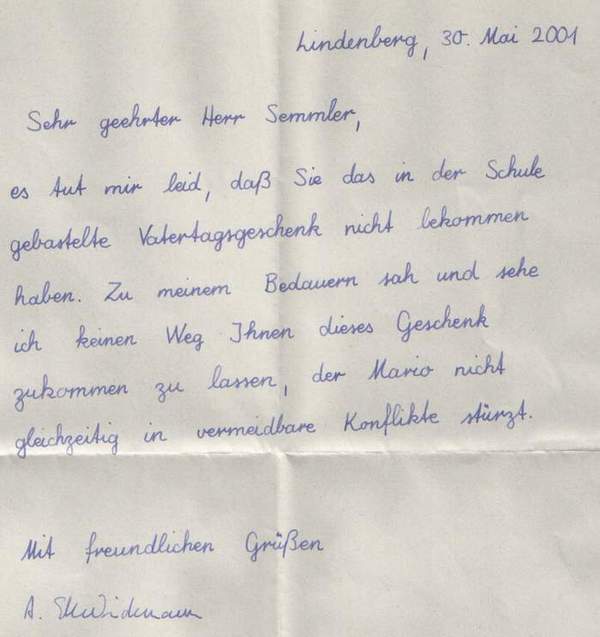 Lindenberg, 30. Mai 2001
Sehr geehrter Herr Semmler,
es tut mir leid, daß Sie das in der Schule
gebastelte Vatertagsgeschenk nicht bekommen
haben. Zu meinem Bedauern sah und sehe
ich keinen Weg Ihnen dieses Geschenk
zukommen zu lassen, der Mario nicht
gleichzeitig in vermeidbare Konflikte stürzt.
Mit freundlichen Grüßen
A.